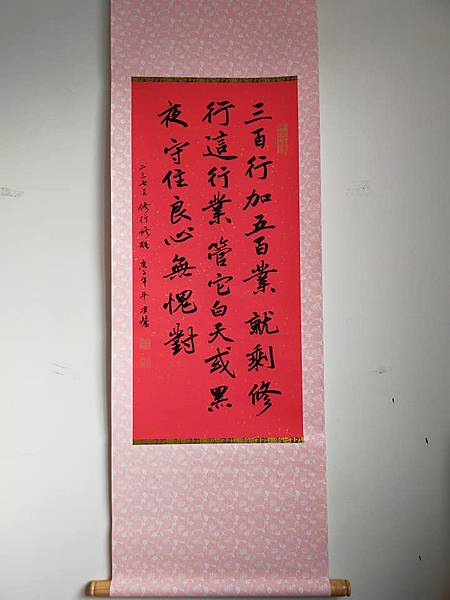 三百行加五百業就剩修
行這行業管它白天或黑
夜守住良心無愧對
二三七三修行修 庚子年